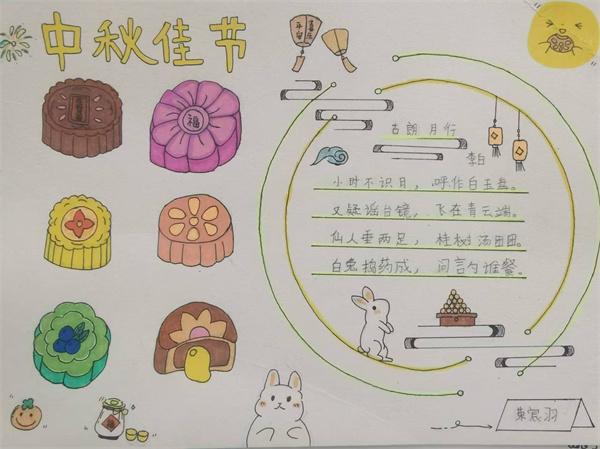 中秋佳节
福
古朗月行
李白
小时不识月，呼作白玉盘。
又疑谣台镜，飞在青云端。
仙人垂两足，桂树汤团团。
白兔捣药成，问言勺谁餐。